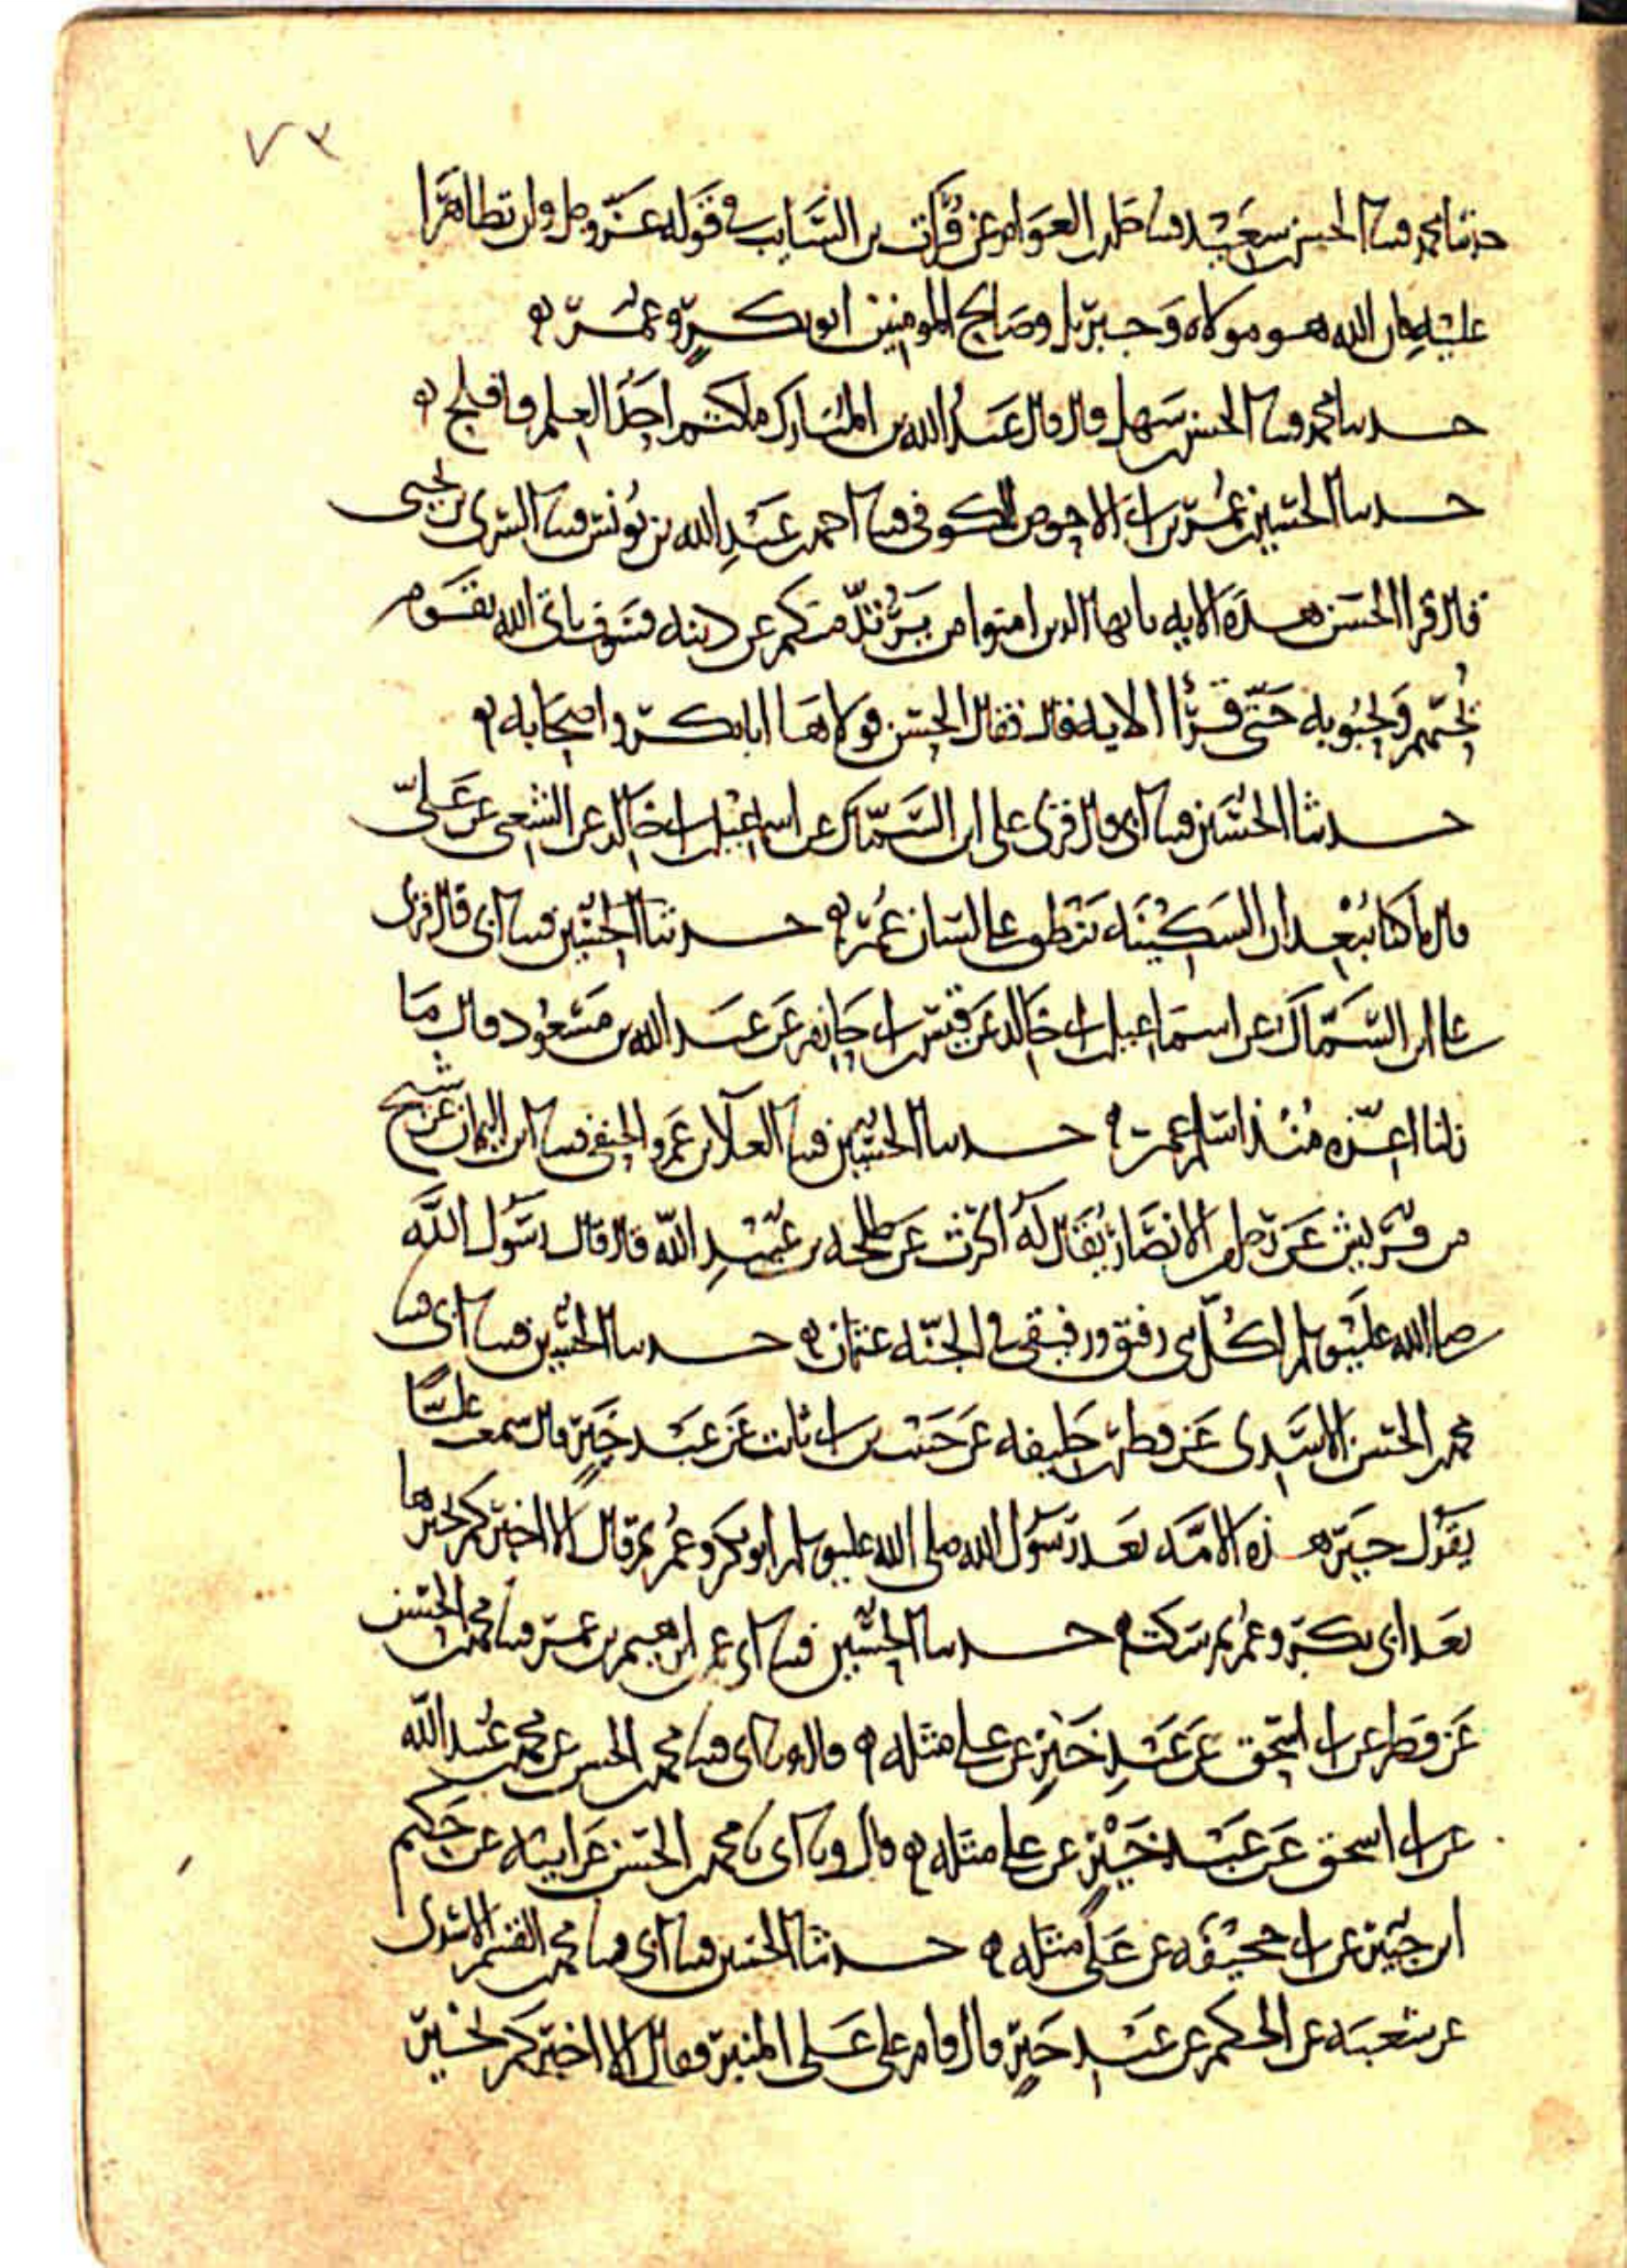 ٧٣
حدثنا محمد قثنا الحسن بن سعيد قثنا خلد بن العوام عن فرات بن السايب في قوله عز وجل وان تظاهرا
عليه فان الله هو مولاه وجبريل وصالح المومنين ابو بكر وعمر ه
حدثنا محمد قثنا الحسن بن سهل قال قال عبد الله بن المبارك ما كتم احد العلم فافلح ه
حدثنا الحسين بن عمر بن ابي الاحوص الكوفي قثنا احمد بن عبد الله بن يونس قثنا السري بن يحيى
قال قرا الحسن هذه الايه يا يها الذين امنوا من يرتد منكم عن دينه فسوف ياتي الله بقوم
يحبهم ويحبونه حتى قرا الايه قال فقال الحسن فولاها ابا بكر واصحابه ه
حدثنا الحسين قثنا ابي قال قرى على ابن السماك عن اسماعيل بن ابي خالد عن الشعبي عن علي
قال ما كنا نبعد ان السكينه تنطق على لسان عمر ه حدثنا الحسين قثنا ابي قال قرى
على ابن السماك عن اسماعيل بن ابي خالد عن قيس بن ابي حازم عن عبد الله بن مسعود قال ما
زلنا اعزه منذ اسلم عمر ه حدثنا الحسين قثنا العلا بن عمرو الحنفي قثنا ابن اليمان عن شيخ
من قريش عن رجل من الانصار يقال له الحرث عن طلحه بن عبيد الله قال قال رسول الله
صلى الله عليه وسلم لكل نبي رفيق ورفيقي في الجنه عثمان ه حدثنا الحسين قثنا ابي قثنا
محمد بن الحسن الاسدي عن فطر بن خليفه عن حبيب بن ابي ثابت عن عبد خير قال سمعت عليا
يقول خير هذه الامه بعد رسول الله صلى الله عليه وسلم ابو بكر وعمر ثم قال الا اخبركم بخيرها
بعد ابي بكر وعمر ثم سكت ه حدثنا الحسين قثنا ابي عن ابرهيم بن عمر قثنا محمد بن الحسن
عن فطر عن ابي اسحق عن عبد خير عن علي مثله ه قال وثنا ابي قثنا محمد بن الحسن عن محمد بن عبيد الله
عن ابي اسحق عن عبد خير عن علي مثله ه قال وثنا ابي نا محمد بن الحسن عن ابيه عن حكيم
ابن جبير عن ابي جحيفه عن علي مثله ه حدثنا الحسين قثنا ابي قثنا محمد بن القسم الاسدي
عن شعبه عن الحكم عن عبد خير قال قام علي على المنبر فقال الا اخبركم بخير